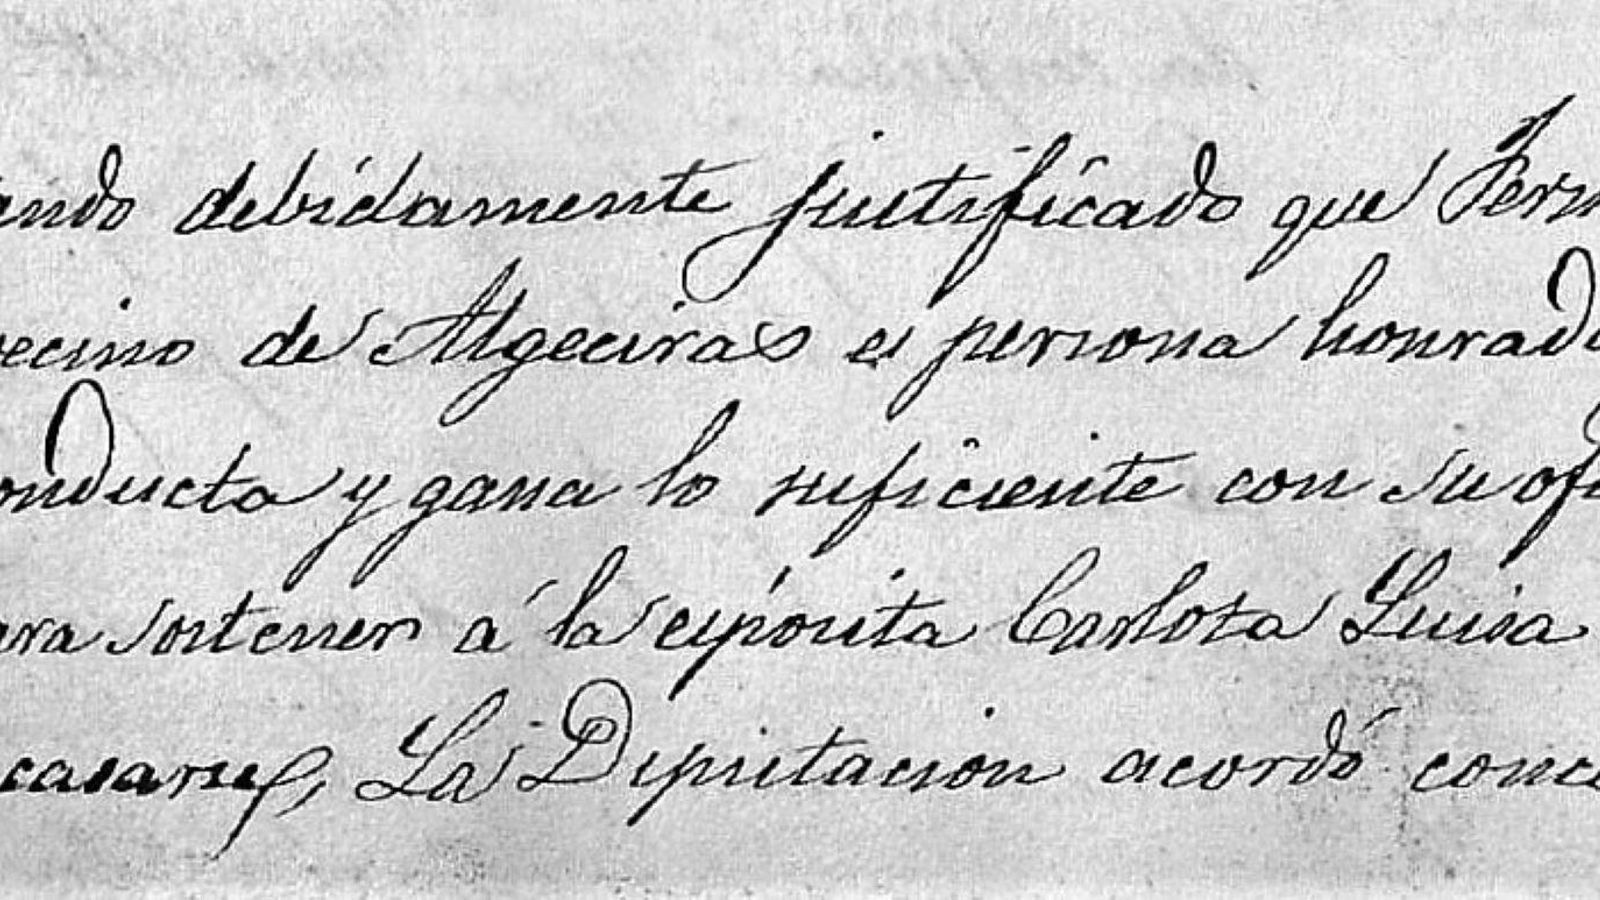 ando debidamente justificado que Fern
vecino de Algeciras es persona honrad
onducta y gana lo suficiente con su ofi
ara sostener á la espósita Carlota Luisa
casarse, La Diputacion acordó conce